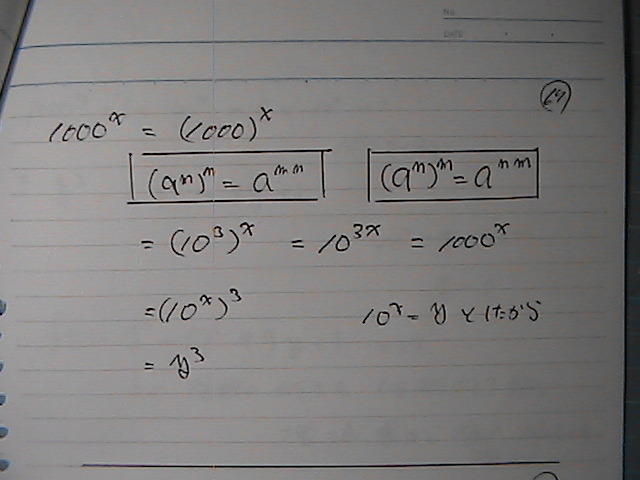 NO.
DATE
1000ˣ = (1000)ˣ
(aⁿ)ᵐ = aᵐⁿ (aⁿ)ᵐ = aⁿᵐ
= (10³)ˣ = 10³ˣ = 1000ˣ
= (10ˣ)³ 10ˣ = y
= y³